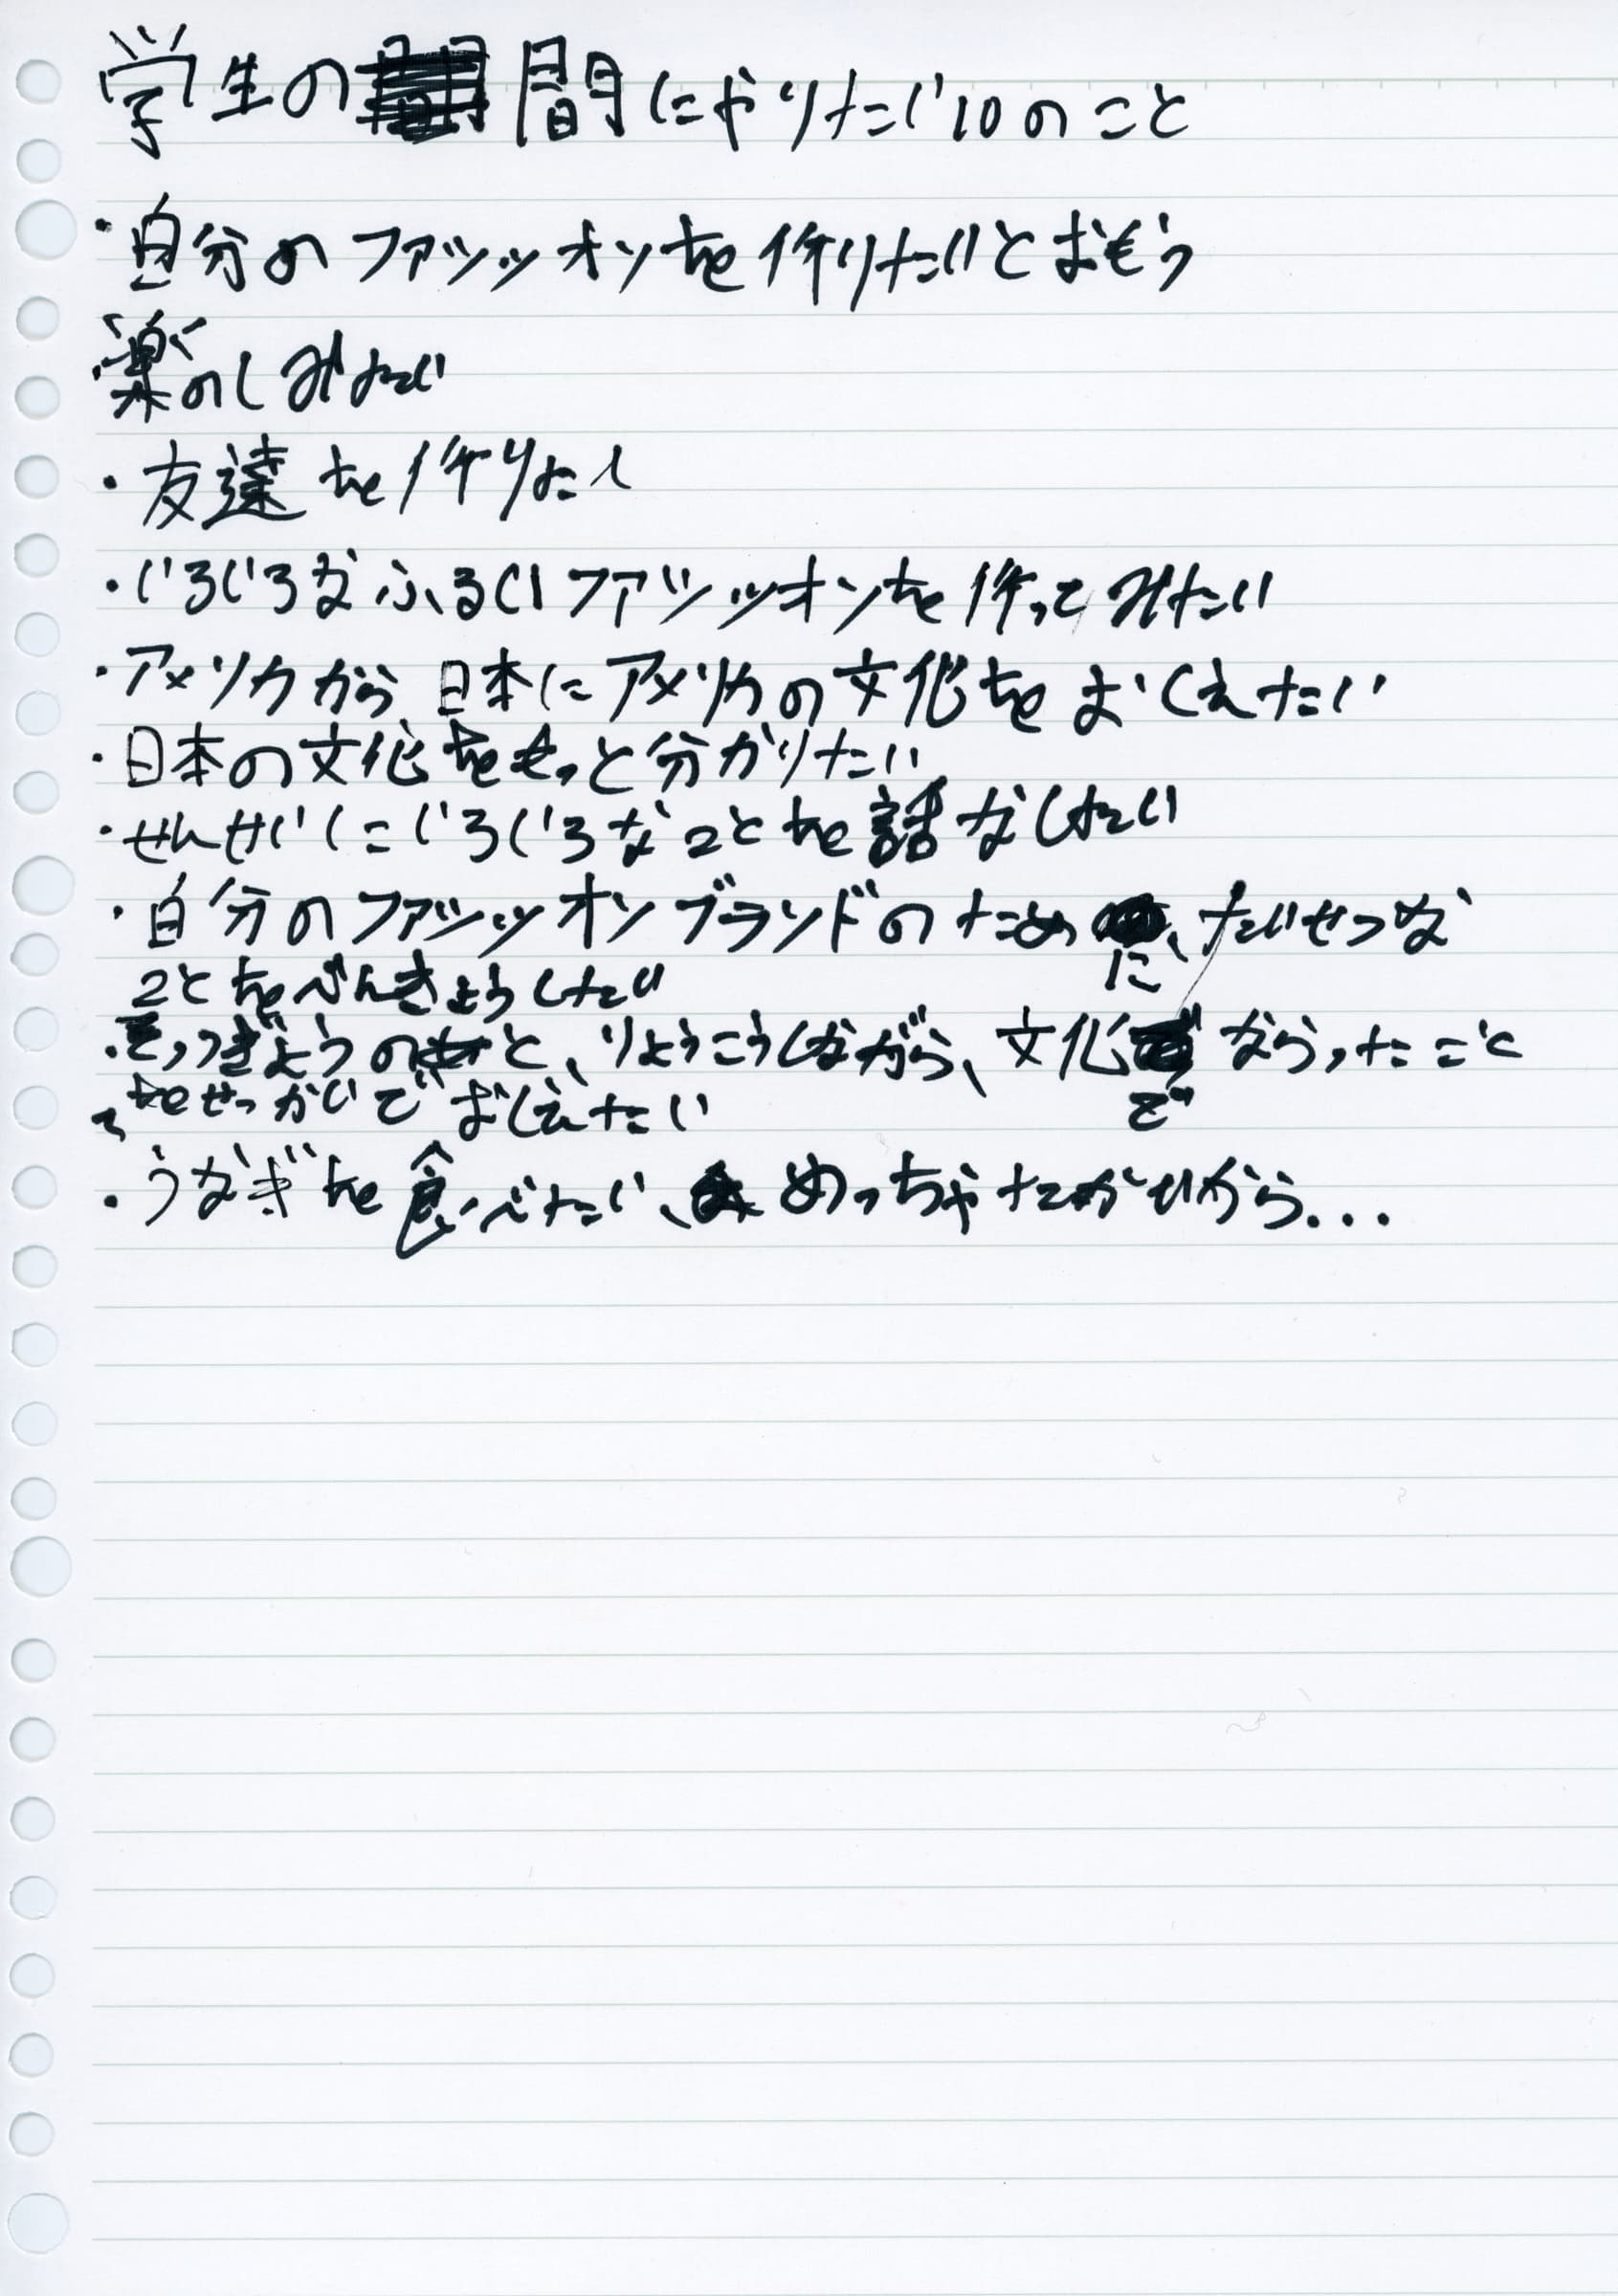 学生の間にやりたい10のこと
・自分のファッツオンを作りたいとおもう
・楽のしみたい
・友達を作りたい
・いろいろなふるいファッツオンを作ってみたい
・アメリカから日本にアメリカの文化をおしえたい
・日本の文化をもっと分かりたい
・せんせいにいろいろなことを話なしたい
・自分のファッツオンブランドのためにたいせつな
ことをべんきょうしたい
・そつぎょうのあと、りょうこうしながら、文化でならったこと
をせっかいでおしえたい
・うなぎを食べたい、めっちゃたかいから...